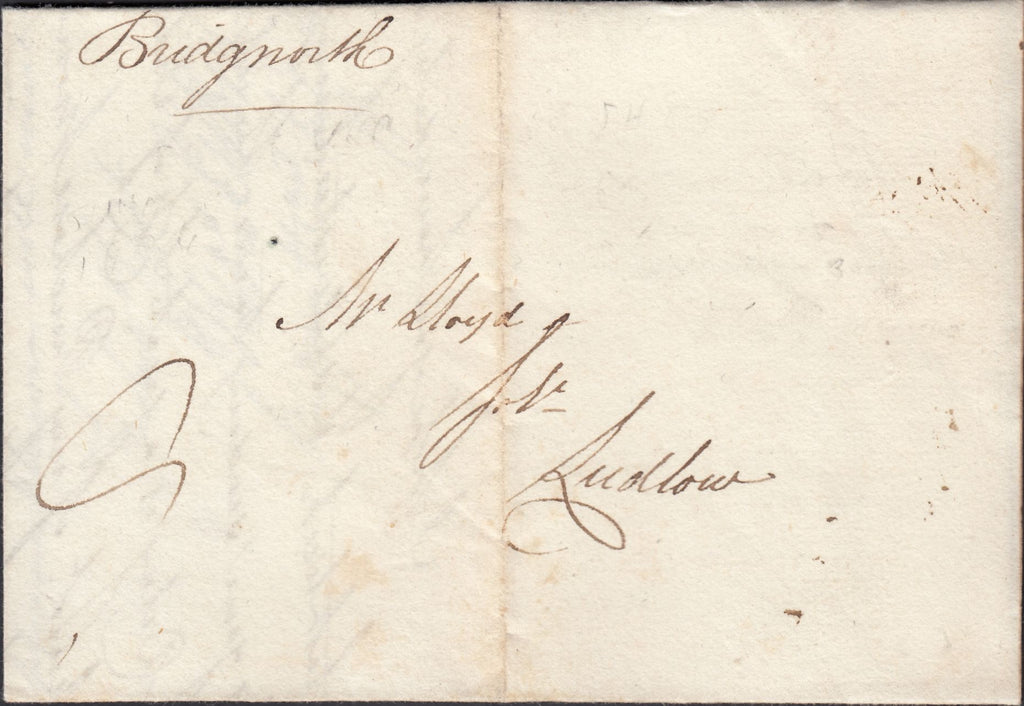 Bridgnorth
Mr Lloyd
Solr
Ludlow